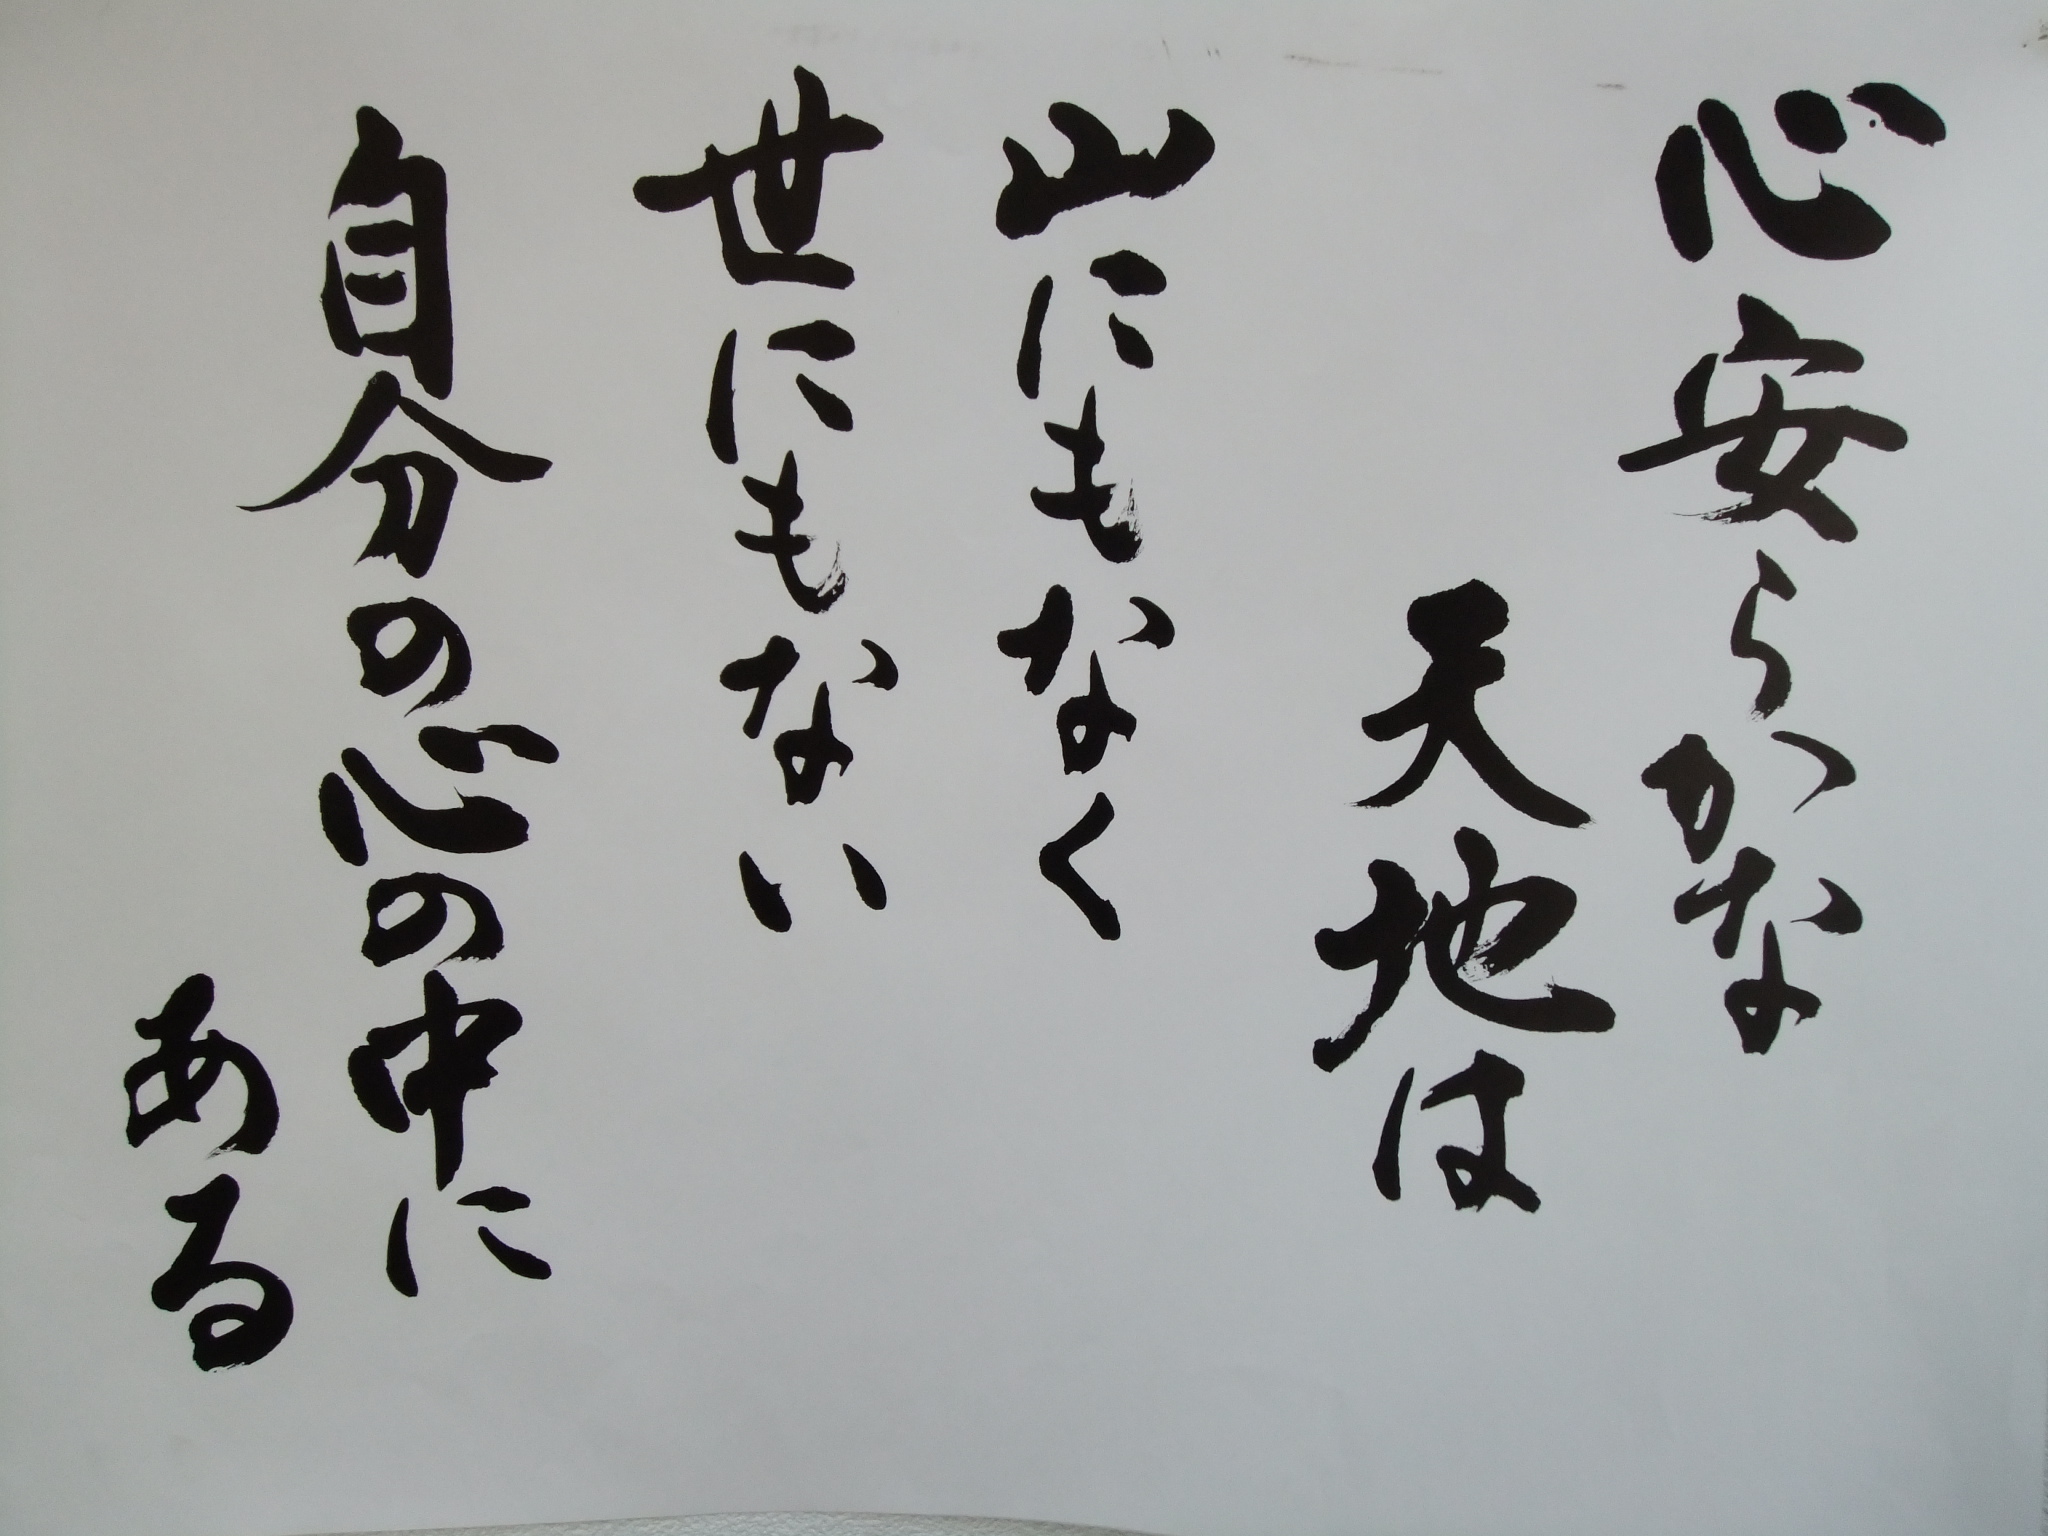 心安らかな
天地は
山にもなく
世にもない
自分の心の中に
ある